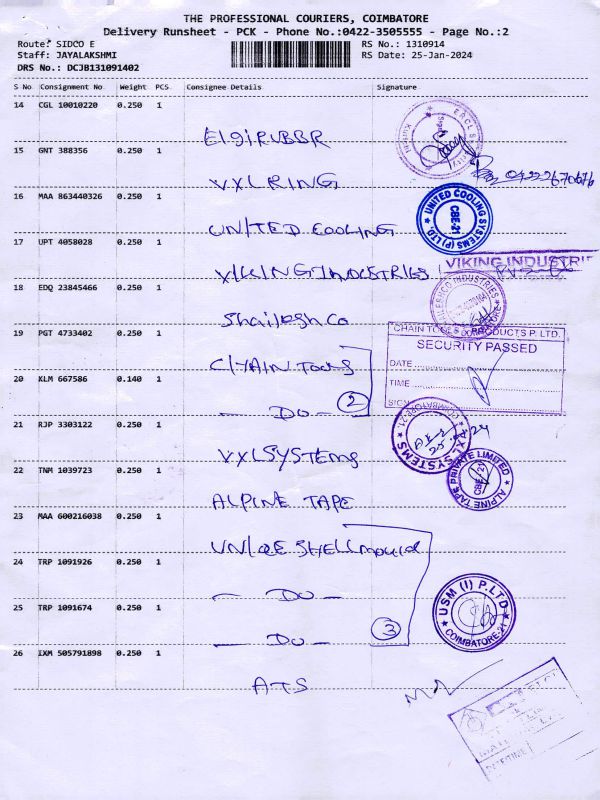 THE PROFESSIONAL COURIERS, COIMBATORE
Delivery Runsheet - PCK - Phone No.:0422-3505555 - Page No.:2
Route: SIDCO E
RS No.: 1310914
Staff: JAYALAKSHMI
RS Date: 25-Jan-2024
DRS No.: DCJB131091402
S No Consignment No. Weight PCS Consignee Details Signature
14 CGL 10010220 0.250 1
Elgi RUBBR
15 GNT 388356 0.250 1
VXL RING
16 MAA 863440326 0.250 1
UNITED COOLING
UNITED COOLING SYSTEMS (P) LTD.
CBE-21
17 UPT 4058028 0.250 1
VIKING INDUSTRIES
VIKING INDUSTRIE
18 EDQ 23845466 0.250 1
Shailesh Co
19 PGT 4733402 0.250 1
CHAIN Tools
CHAIN TOOLS PRODUCTS P. LTD.
SECURITY PASSED
DATE
TIME
20 KLM 667586 0.140 1
- DO - 2
21 RJP 3303122 0.250 1
VXL SYSTEMS
VXL SYSTEMS
COIMBATORE-21.
22 TNM 1039723 0.250 1
ALPINE TAPE
ALPINE TAPE PRIVATE LIMITED
CBE-21
23 MAA 600216038 0.250 1
UNIQE SHELL mould
24 TRP 1091926 0.250 1
- DO -
25 TRP 1091674 0.250 1
- DO - 3
USM (I) P.LTD
COIMBATORE-21
26 IXM 505791898 0.250 1
ATS
DATE/TIME